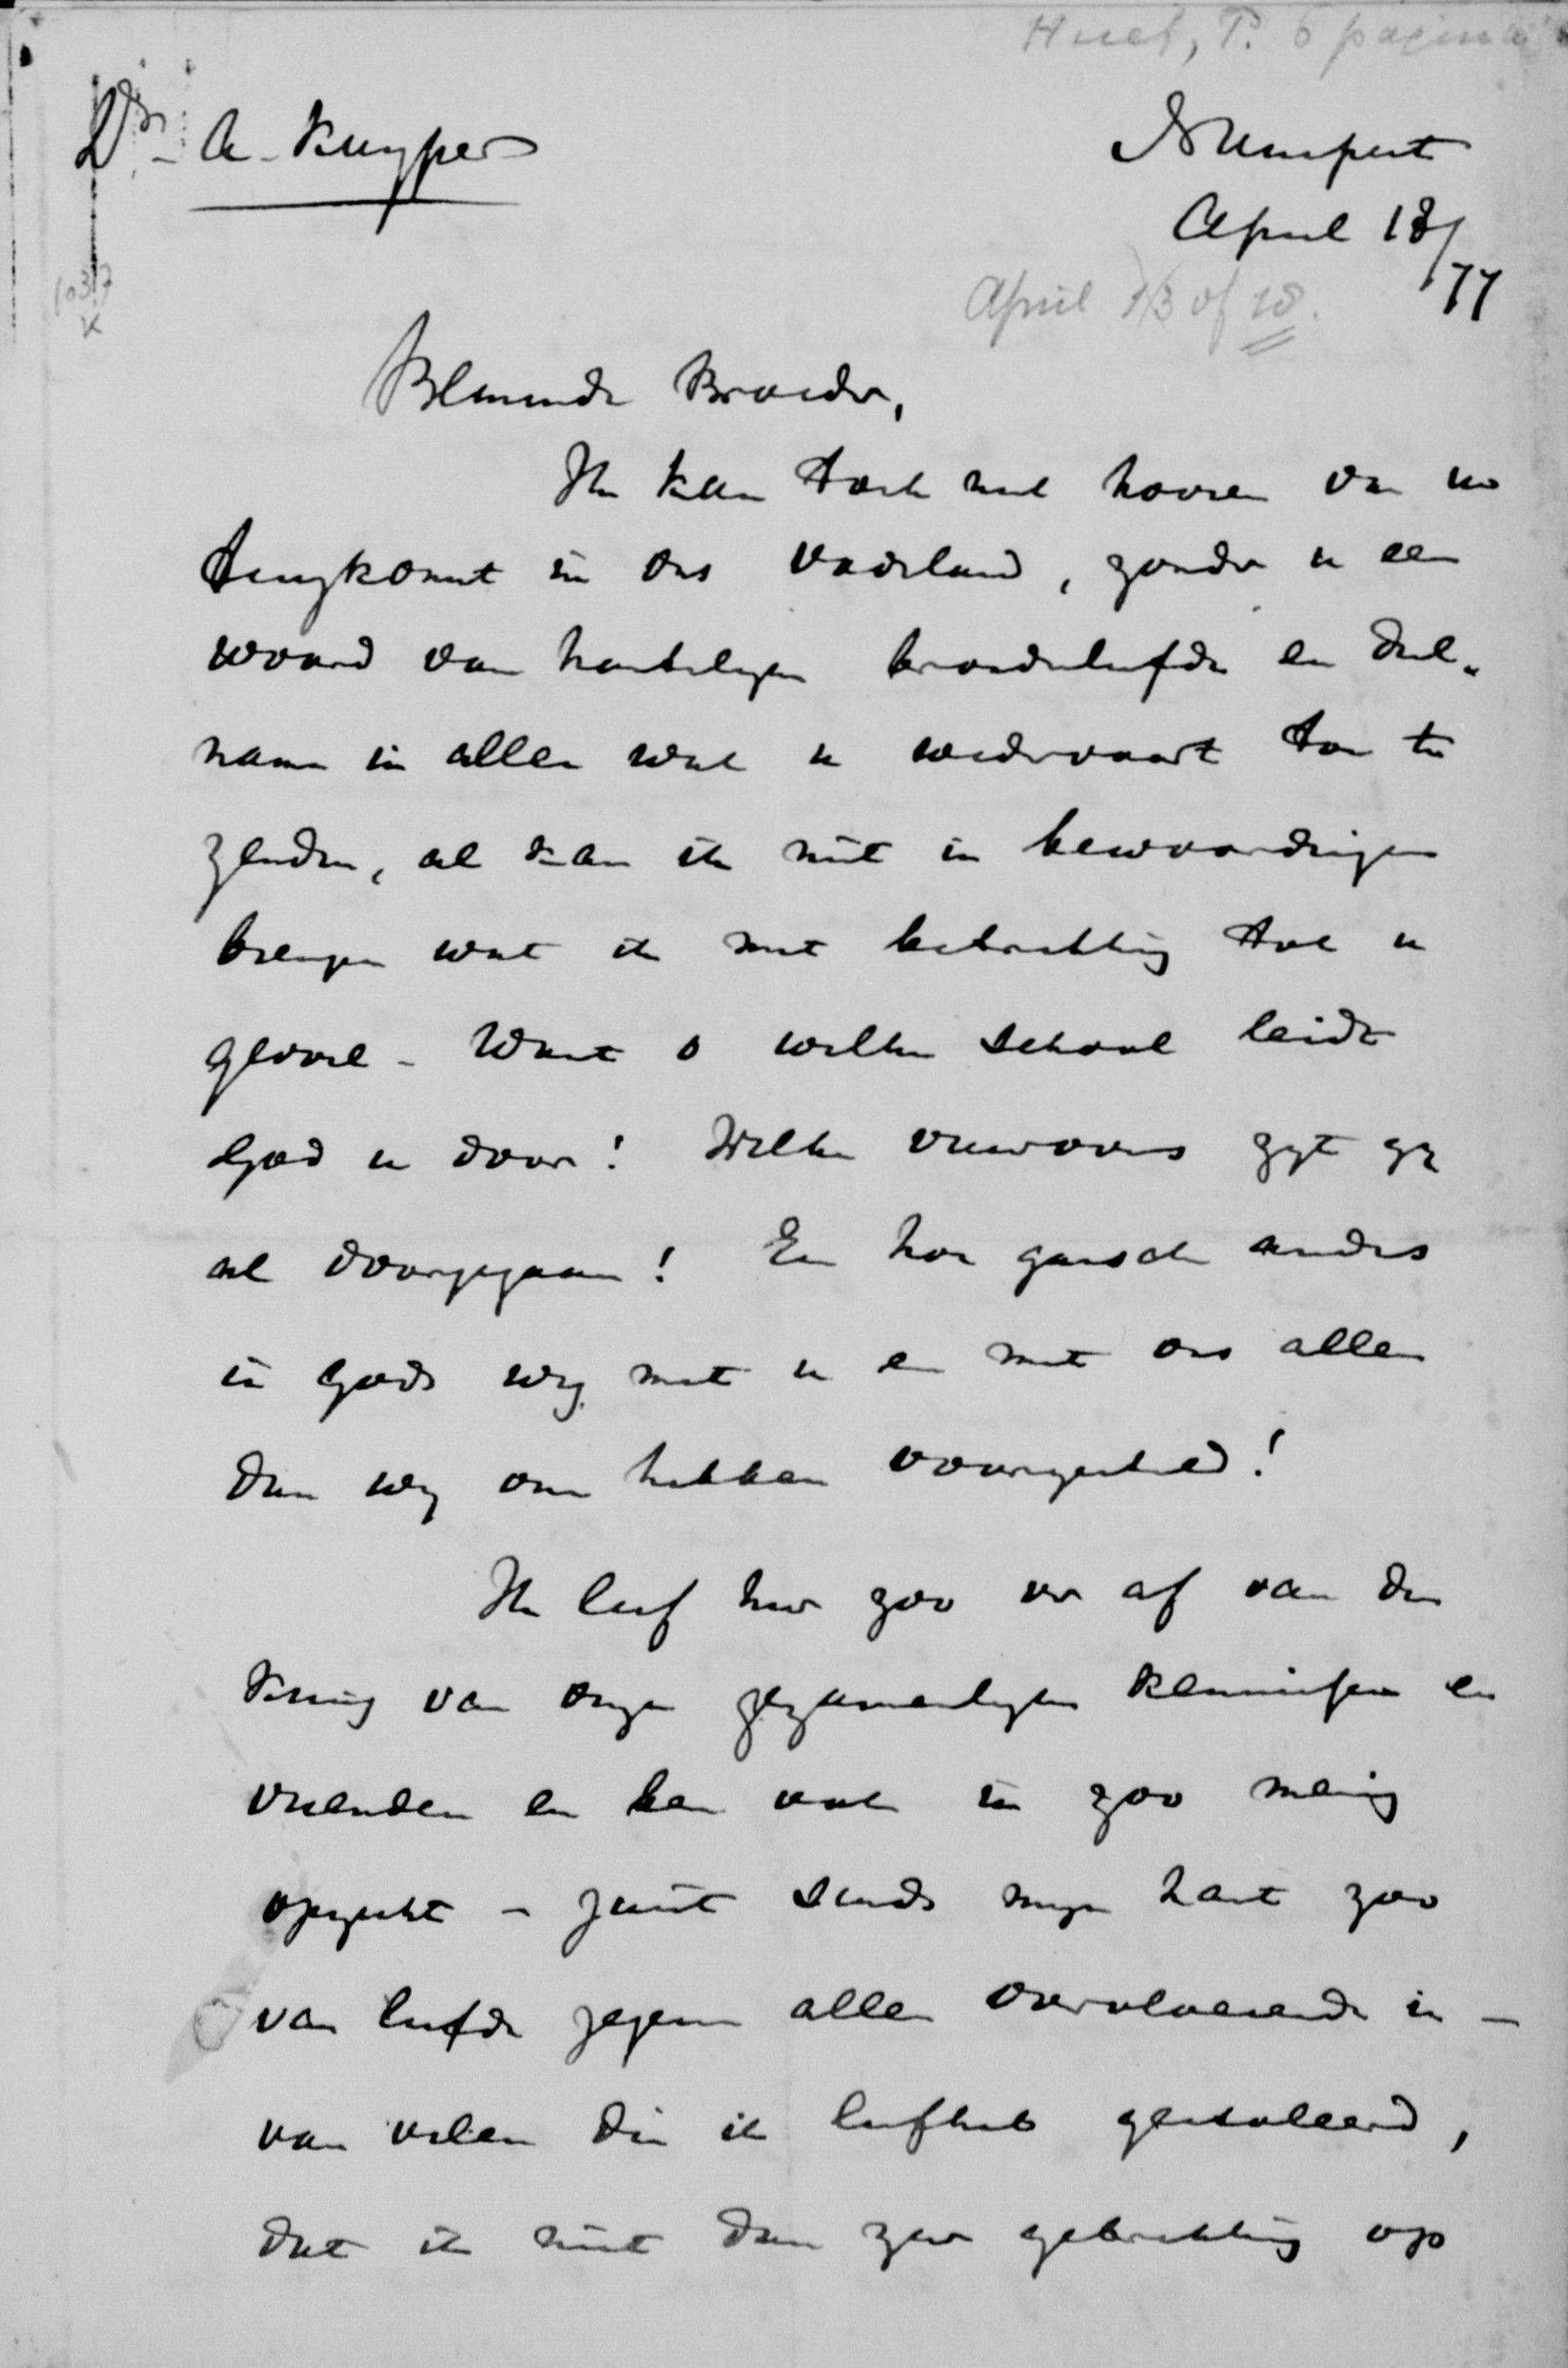 Huet, P. 6 pagina's
Dr. A. Kuyper
Nunspeet
April 18/
/77
April 13 of 18.
1037
K
Beminde Broeder,
Ik kan toch niet hooren van uw
terugkomst in ons vaderland, zonder u een
woord van hartelijke broederliefde en deel-
name in alles wat u wedervaart toe te
zenden, al kan ik niet in bewoordingen
brengen wat ik met betrekking tot u
gevoel - Want o welke school leidt
God u door! Welke vuuroven zyt gy
al doorgegaan! En hoe gansch anders
is Gods weg met u en met ons allen
dan wy ons hebben voorgesteld!
Ik leef hier zoo ver af van den
kring van onze gezamenlyke kennissen en
vrienden en ben ook in zoo menig
opzicht - juist sinds myn hart zoo
van liefde jegens allen overvloeiende is -
van velen die ik liefheb geisoleerd,
dat ik niet dan zeer gebrekkig op